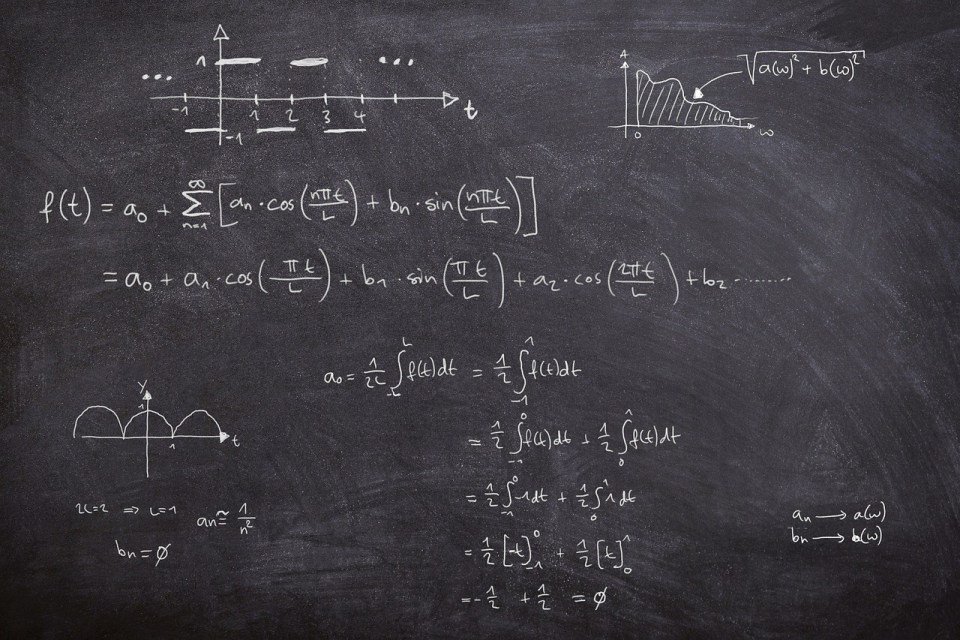 1
... ...
-1 1 2 3 4 t
-1
A
√(a(ω)² + b(ω)²)
0 ω
f(t) = a₀ + ∞∑n=1 [aₙ · cos(nπt/L) + bₙ · sin(nπt/L)]
= a₀ + a₁ · cos(πt/L) + b₁ · sin(πt/L) + a₂ · cos(2πt/L) + b₂ ........
a₀ = 1/2L ∫_-L^L f(t)dt = 1/2 ∫_-1^1 f(t)dt
= 1/2 ∫_-1^0 f(t)dt + 1/2 ∫_0^1 f(t)dt
= 1/2 ∫_-1^0 -1dt + 1/2 ∫_0^1 1dt
= 1/2 [-t]_-1^0 + 1/2 [t]_0^1
= -1/2 + 1/2 = ∅
y
1
1 t
2L=2 ⇒ L=1
aₙ ≅ 1/n²
bₙ = ∅
aₙ → a(ω)
bₙ → b(ω)